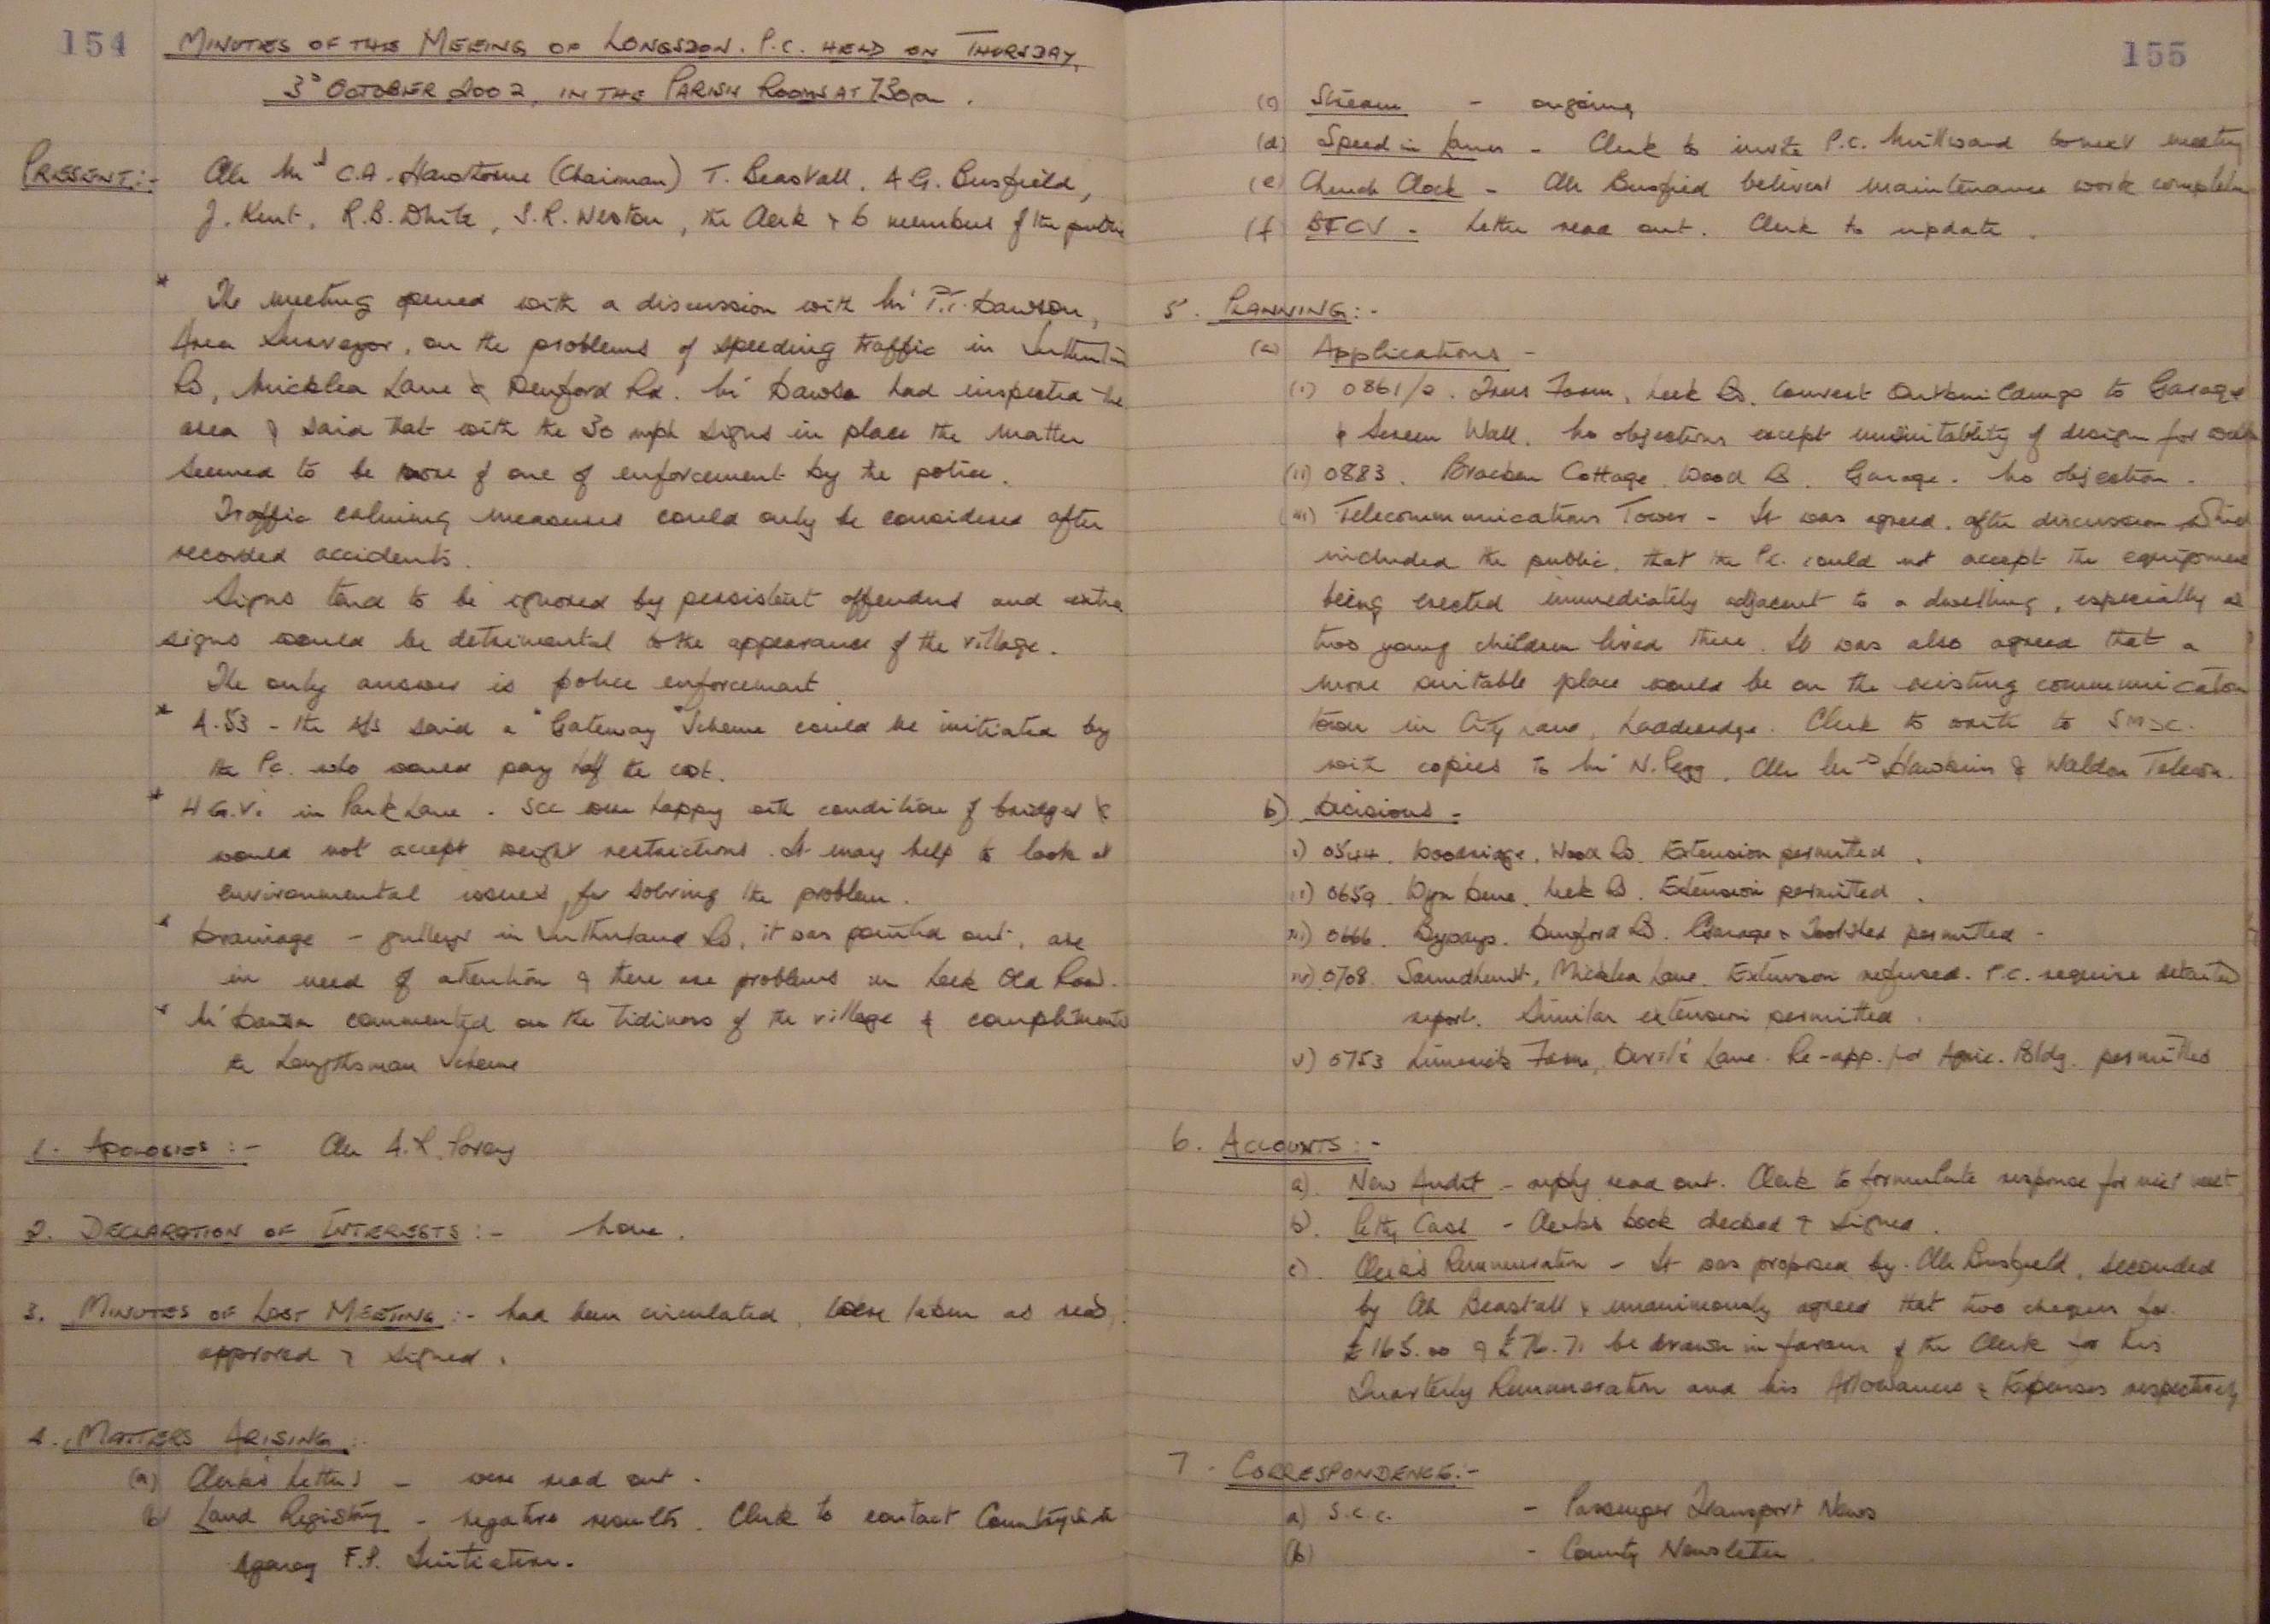 154
MINUTES OF THE MEEING OF LONGSDON. P.C. HELD ON THURSDAY,
3rd OCTOBER 2002, IN THE PARISH ROOMS AT 7.30pm.
PRESENT:- Cllr Mrs C.A. Hawthorne (Chairman) T. Beastall, A.G. Busfield,
J. Kent, R.B. White, S.R. Weston, the Clerk & 6 members of the public
* The meeting opened with a discussion with Mr P.T. Dawson,
Area Surveyor, on the problems of speeding traffic in Sutherland
Rd, Micklea Lane & Denford Rd. Mr Dawson had inspected the
area & said that with the 30 mph signs in place the matter
seemed to be more of one of enforcement by the police.
Traffic calming measures could only be considered after
recorded accidents.
Signs tend to be ignored by persistent offenders and extra
signs would be detrimental to the appearance of the village.
The only answer is police enforcement
* A.53 - the A/S said a "Gateway" Scheme could be initiated by
the P.C. who would pay half the cost.
* H.G.V. in Park Lane - SCC were happy with condition of bridges &
would not accept weight restrictions. It may help to look at
environmental issues for solving the problem.
* Drainage - gulleys in Sutherland Rd, it was pointed out, are
in need of attention & there are problems in Leek Old Road.
* Mr Dawson commented on the tidiness of the village & compliments
the Lengthsman Scheme
1. APOLOGIES:- Cllr A.L. Povey
2. DECLARATION OF INTERESTS:- None.
3. MINUTES OF LAST MEETING:- had been circulated, were taken as read,
approved & signed.
4. MATTERS ARISING:
(a) Clerk's Letters - were read out.
(b) Land Registry - negative results. Clerk to contact Countryside
Agency F.P. Initiative.
155
(c) Stream - ongoing
(d) Speed in Lanes - Clerk to invite P.C. Millward to next meeting
(e) Church Clock - Cllr Busfied believed maintenance work complete
(f) BTCV - Letter read out. Clerk to update.
5. PLANNING:-
(a) Applications -
(i) 0861/2. Farm, Leek Rd. Convert Outbuildings to Garage
& Screen Wall. No objections except unsuitability of design for wall
(ii) 0883. Bracken Cottage, Wood Rd. Garage. No objection.
(iii) Telecommunications Tower - It was agreed, after discussion which
included the public, that the P.C. could not accept the equipment
being erected immediately adjacent to a dwelling, especially as
two young children lived there. It was also agreed that a
more suitable place would be on the existing communication
tower in City Lane, Ladderedge. Clerk to write to SMDC.
with copies to Mr N. Pegg, Cllr Mrs Hawkins & Waldon Telecom.
b) Decisions -
i) 0544. Woodridge, Wood Rd. Extension permitted.
ii) 0659. Wyn Dene, Leek Rd. Extension permitted.
iii) 0666. Byways, Denford Rd. Garage & Toolshed permitted -
iv) 0708. Micklea Lane. Extension refused. P.C. require detailed
report. Similar extension permitted.
v) 0753 Farm, Devil's Lane. Re-app. for Agric. Bldg. permitted
6. ACCOUNTS:-
a). New Audit - reply read out. Clerk to formulate response for next meet
b). Petty Cash - Clerks book checked & signed.
c). Clerk's Remuneration - It was proposed by Cllr Busfield, seconded
by Cllr Beastall & unanimously agreed that two cheques for
£165.00 & £76.71 be drawn in favour of the Clerk for his
Quarterly Remuneration and his Allowances & Expenses respectively
7. CORRESPONDENCE:-
a) S.C.C. - Passenger Transport News
(b) - County Newsletter